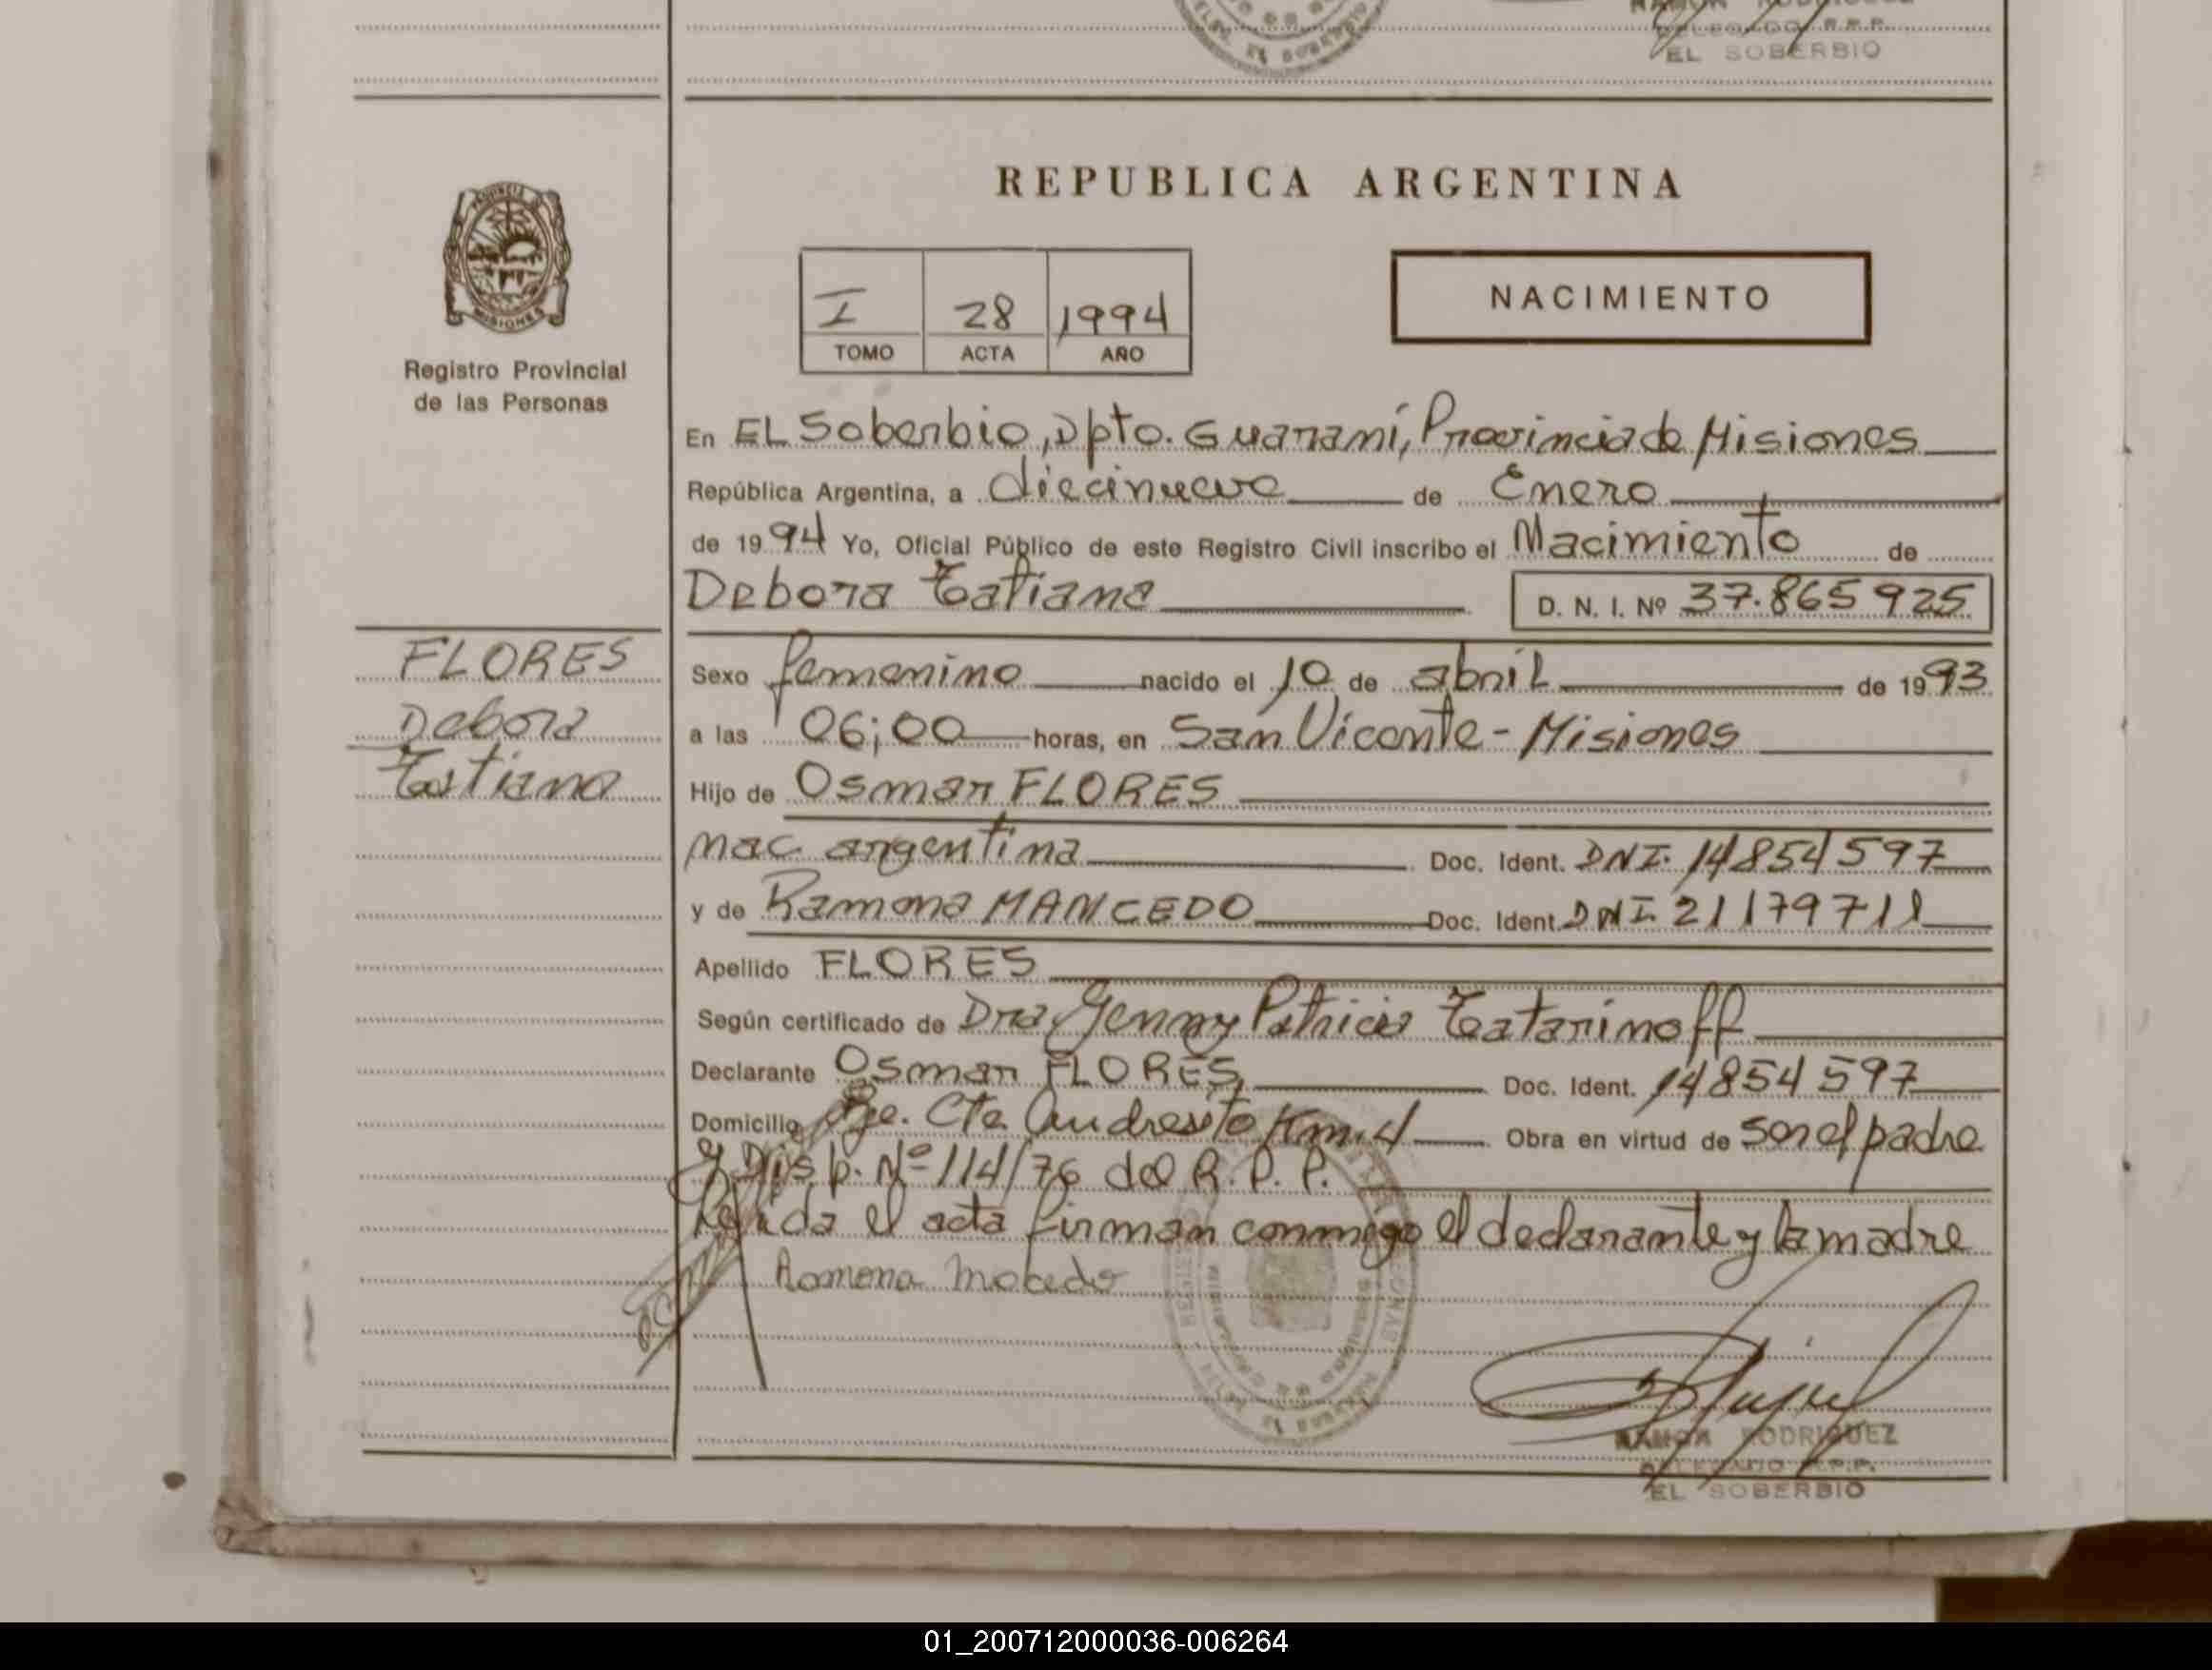 EL SOBERBIO
REPUBLICA ARGENTINA
I 28 1994
TOMO ACTA AÑO
NACIMIENTO
PROVINCIA D
MISIONES
Registro Provincial
de las Personas
En EL Soberbio, Dpto. Guaraní, Provincia de Misiones
República Argentina, a diecinueve de Enero
de 1994 Yo, Oficial Público de este Registro Civil inscribo el Nacimiento de
Debora Tatiana D. N. I. Nº 37.865925
FLORES
Debora
Tatiana
Sexo femenino nacido el 10 de abril de 1993
a las 06;00 horas, en San Vicente - Misiones
Hijo de Osmar FLORES
nac. argentina Doc. Ident. DNI. 14854597
y de Ramona MANCEDO Doc. Ident. DNI 21179711
Apellido FLORES
Según certificado de Dra Genny Patricia Tatarinoff
Declarante Osmar FLORES, Doc. Ident. 14854597
Domicilio Pje. Cte. Andresito Km. 4 Obra en virtud de ser el padre
y Disp. Nº 114/76 del R. P. P.
Leída el acta firman conmigo el declarante y la madre
Ramona Macedo
RAMON RODRIGUEZ
DELEGADO R.P.P.
EL SOBERBIO
01_200712000036-006264